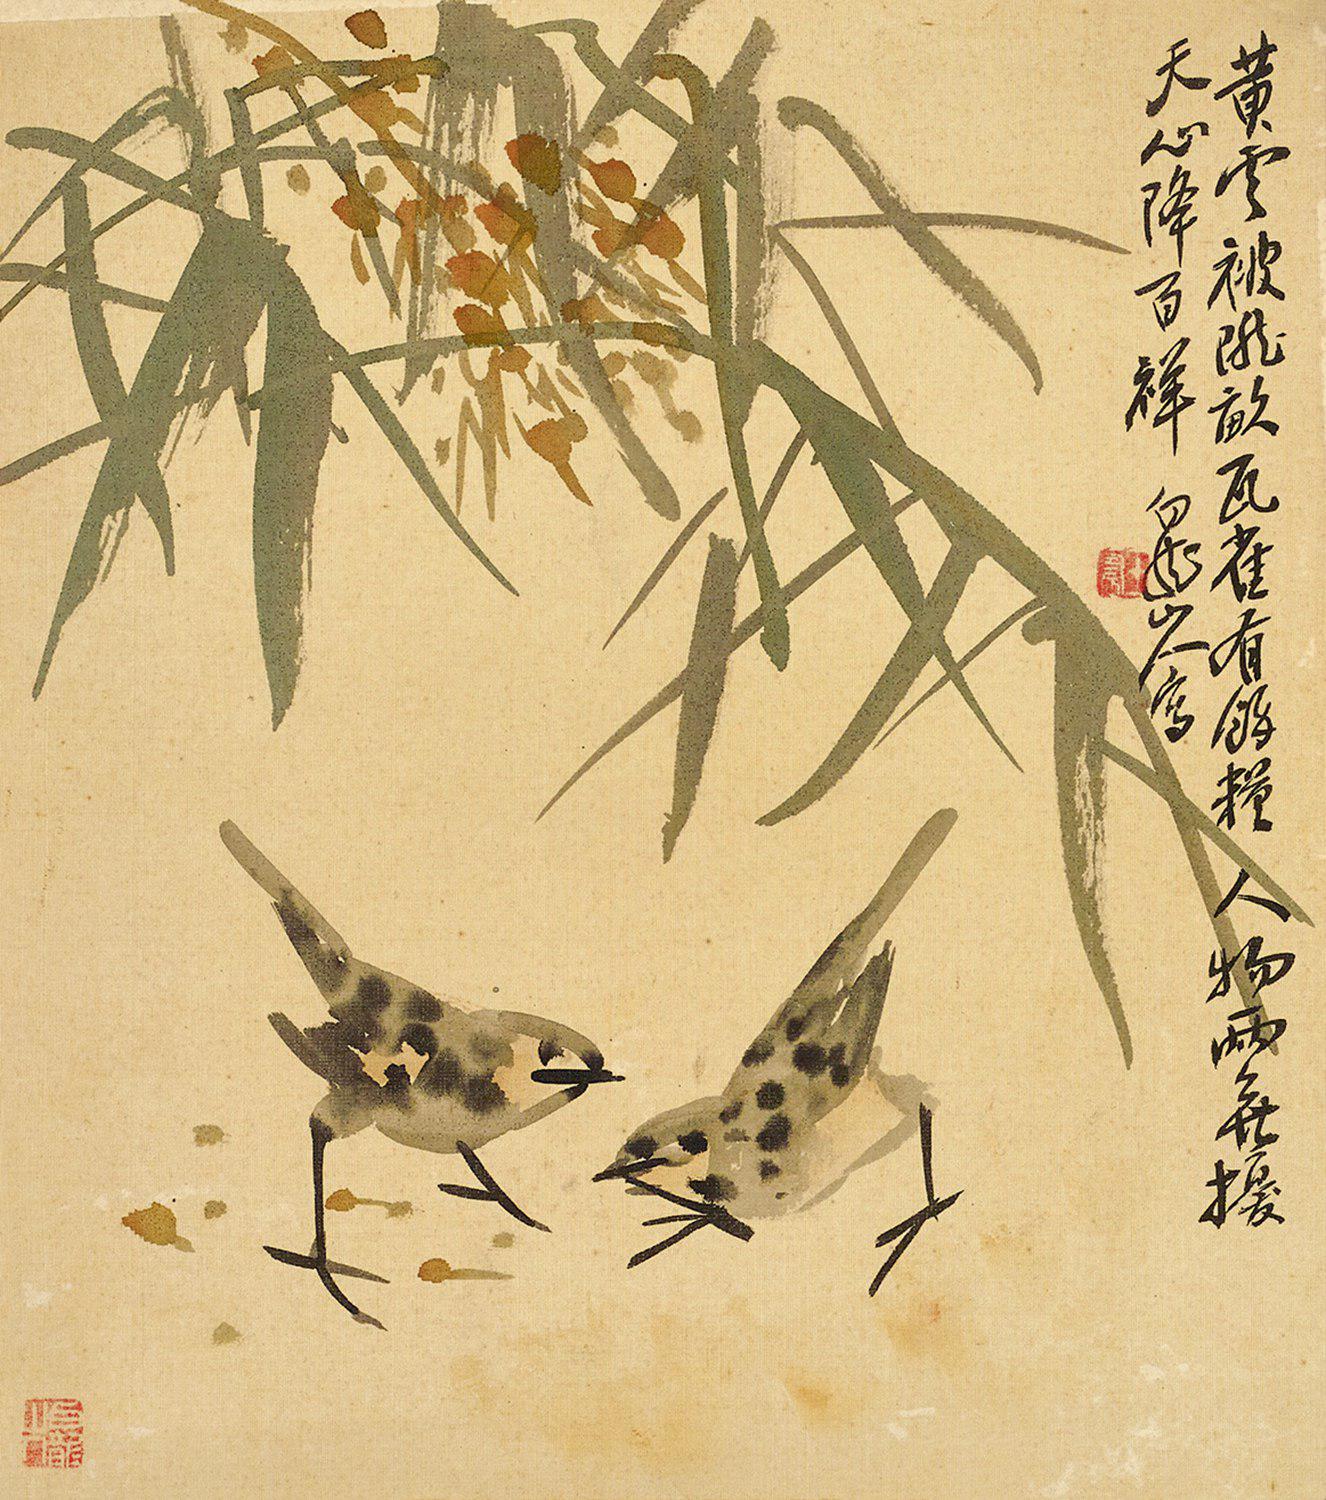 黃雲被隴畝瓦雀有餘糧人物兩無擾
天心降百祥 白龍山人寫